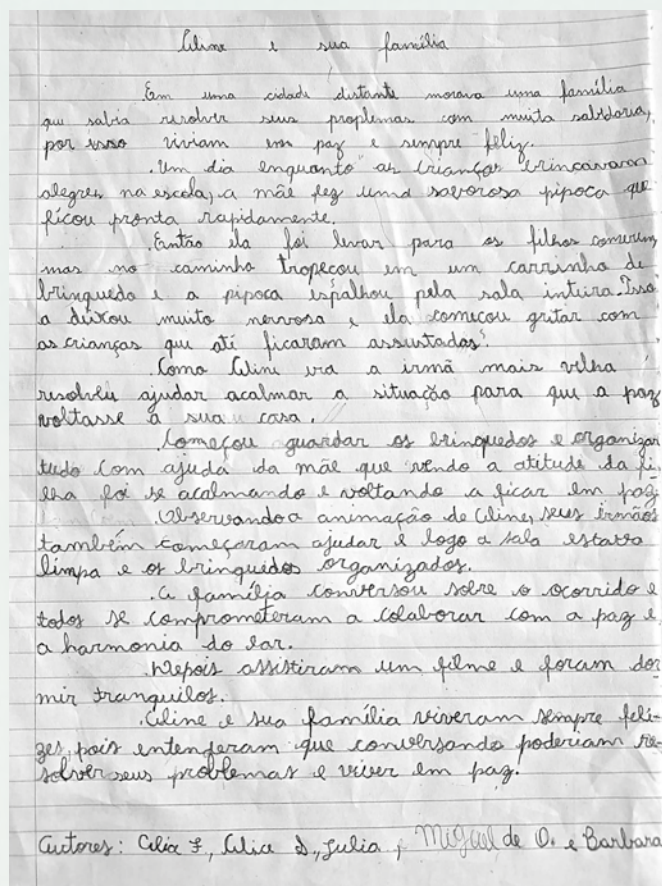 Aline e sua família
Em uma cidade distante morava uma família
que sabia resolver seus proplemas com muita sabedoria,
por isso viviam em paz e sempre feliz.
.Um dia enquanto as crianças brincavam
alegres na escola, a mãe fez uma saborosa pipoca que
ficou pronta rapidamente.
.Então ela foi levar para os filhos comerem,
mas no caminho tropeçou em um carrinho de
brinquedo e a pipoca espalhou pela sala inteira. Isso
a deixou muito nervosa e ela começou gritar com
as crianças que até ficaram assustadas.
.Como Aline era a irmã mais velha
resolveu ajudar acalmar a situação para que a paz
voltasse a sua casa.
.Começou guardar os brinquedos e organizar
tudo com ajuda da mãe que vendo a atitude da fi-
lha foi se acalmando e voltando a ficar em paz.
.Observando a animação de Aline, seus irmãos
também começaram ajudar e logo a sala estava
limpa e os brinquedos organizados.
.A família conversou sobre o ocorrido e
todos se comprometeram a colaborar com a paz e
a harmonia do lar.
.Depois assistiram um filme e foram dor
mir tranquilos.
.Aline e sua família viveram sempre feli-
zes, pois entenderam que conversando poderiam re-
solver seus problemas e viver em paz.
Autores: Alice F., Alice D., Julia, Miguel de O. e Barbara